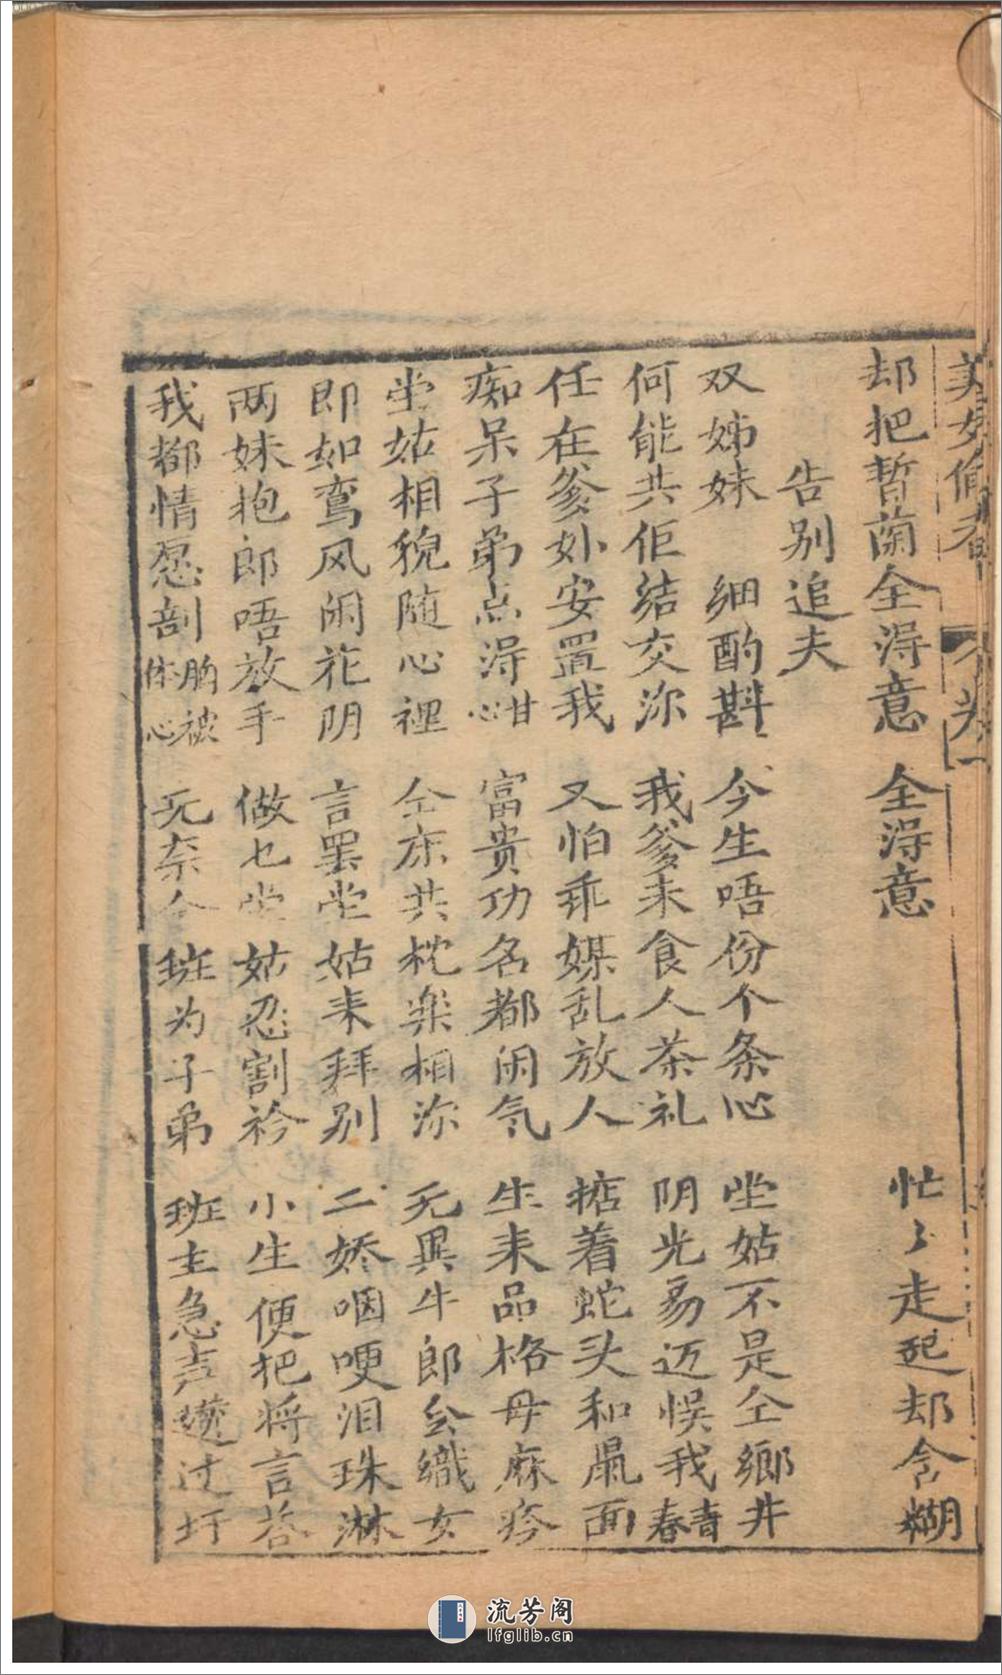 美女偷香 卷一
却把哲蘭全淂意 全淂意 忙了走起却含糊
告别追夫
双姊妹 细酌斟 今生唔份个条心 坐姑不是仝鄉井
何能共佢结交深 我爹未食人茶礼 阴光易迈悞我青春
任在爹妈安置我 又怕乖媒乱放人 掂着蛇头和鼠面
痴呆子弟点淂甘心 富贵功名都闲气 生来品格毋麻疹
坐姑相貌随心裡 仝床共枕樂相深 无異牛郎会織女
即如鸾风闲花阴 言罢坐姑来拜别 二娇咽哽泪珠淋
两妹抱郎唔放手 做乜坐姑忍割衿 小生便把将言答
我都情愿剖胸被体心 无奈今班为子弟 班主急声过圩
流芳阁
lfglib.cn